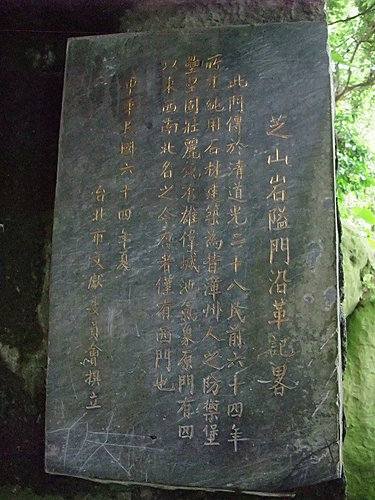 芝山岩隘門沿革記畧
此門傳於清道光二十八民前六十四年
所建純用石材建築為昔漳州人之防禦堡
壘堅固壯麗頗有雄偉城池氣象原門有四
以東西南北名之今存者僅有西門也
中華民國六十四年夏
台北市文獻委員會撰立